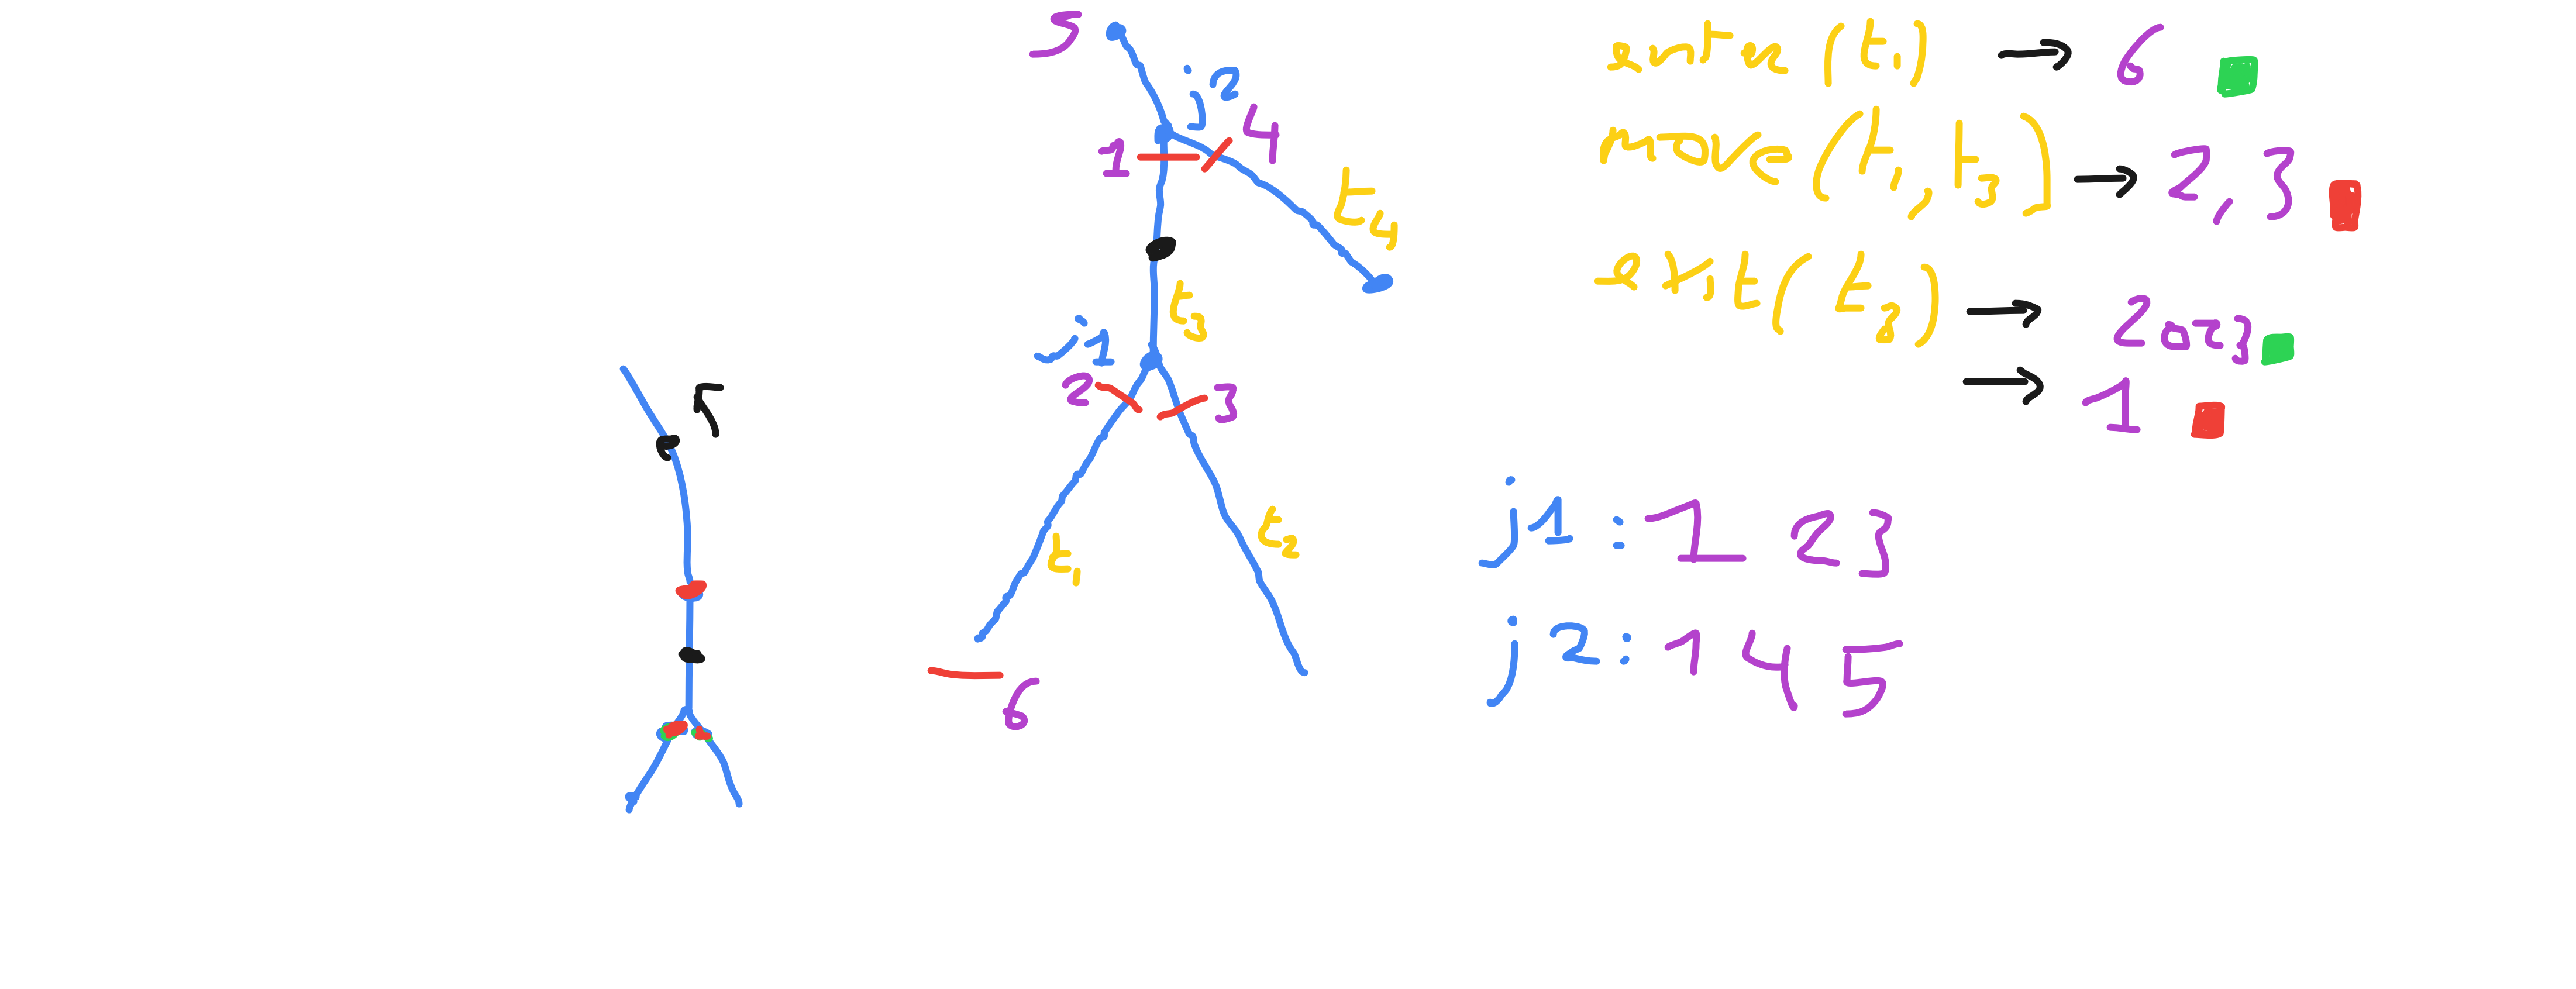 5
j2
4
1
t4
t3
j1
2
3
t1
t2
6
enter (t1) → 6
move (t1, t3) → 2, 3
exit (t2) → 2 or 3
→ 1
j1 : 1 2 3
j2 : 1 4 5